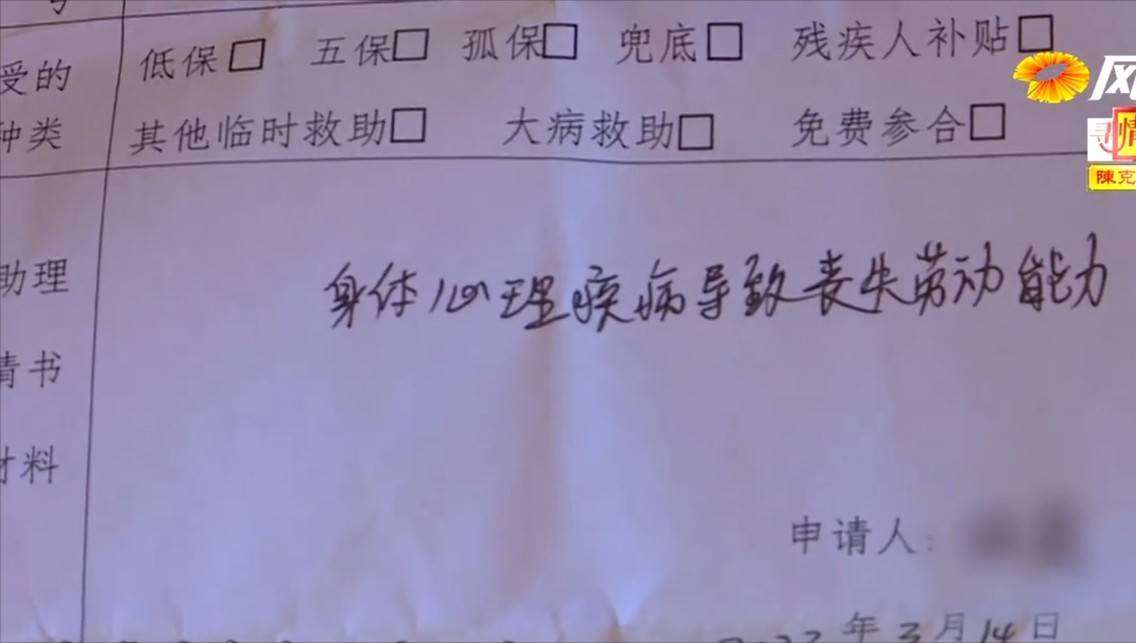 受的
种类
低保□ 五保□ 孤保□ 兜底□ 残疾人补贴□
其他临时救助□ 大病救助□ 免费参合□
助理
情书
材料
身体心理疾病导致丧失劳动能力
申请人:
年3月14日
风
寻情
陳克